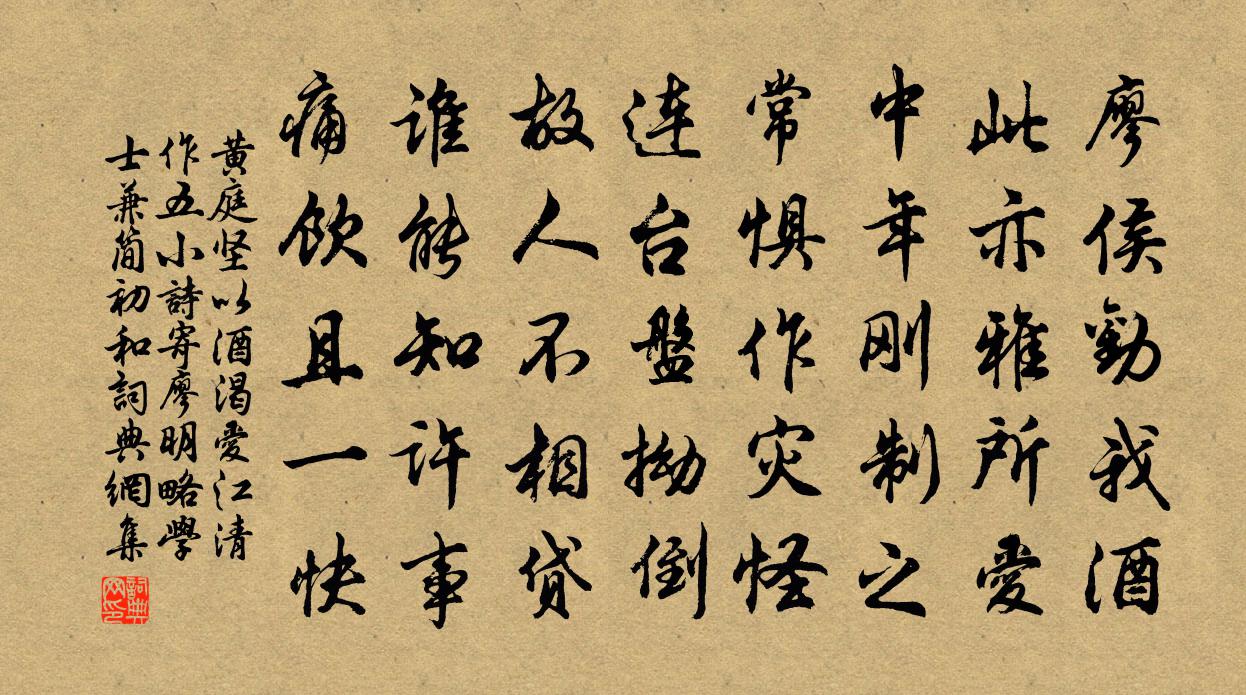 廖侯勸我酒
此亦雅所愛
中年刚制之
常惧作灾怪
连台盤拗倒
故人不相贷
谁能知许事
痛飲且一快
黄庭坚以酒渴愛江清
作五小詩寄廖明略學
士兼简初和詞典網集
詞典网印